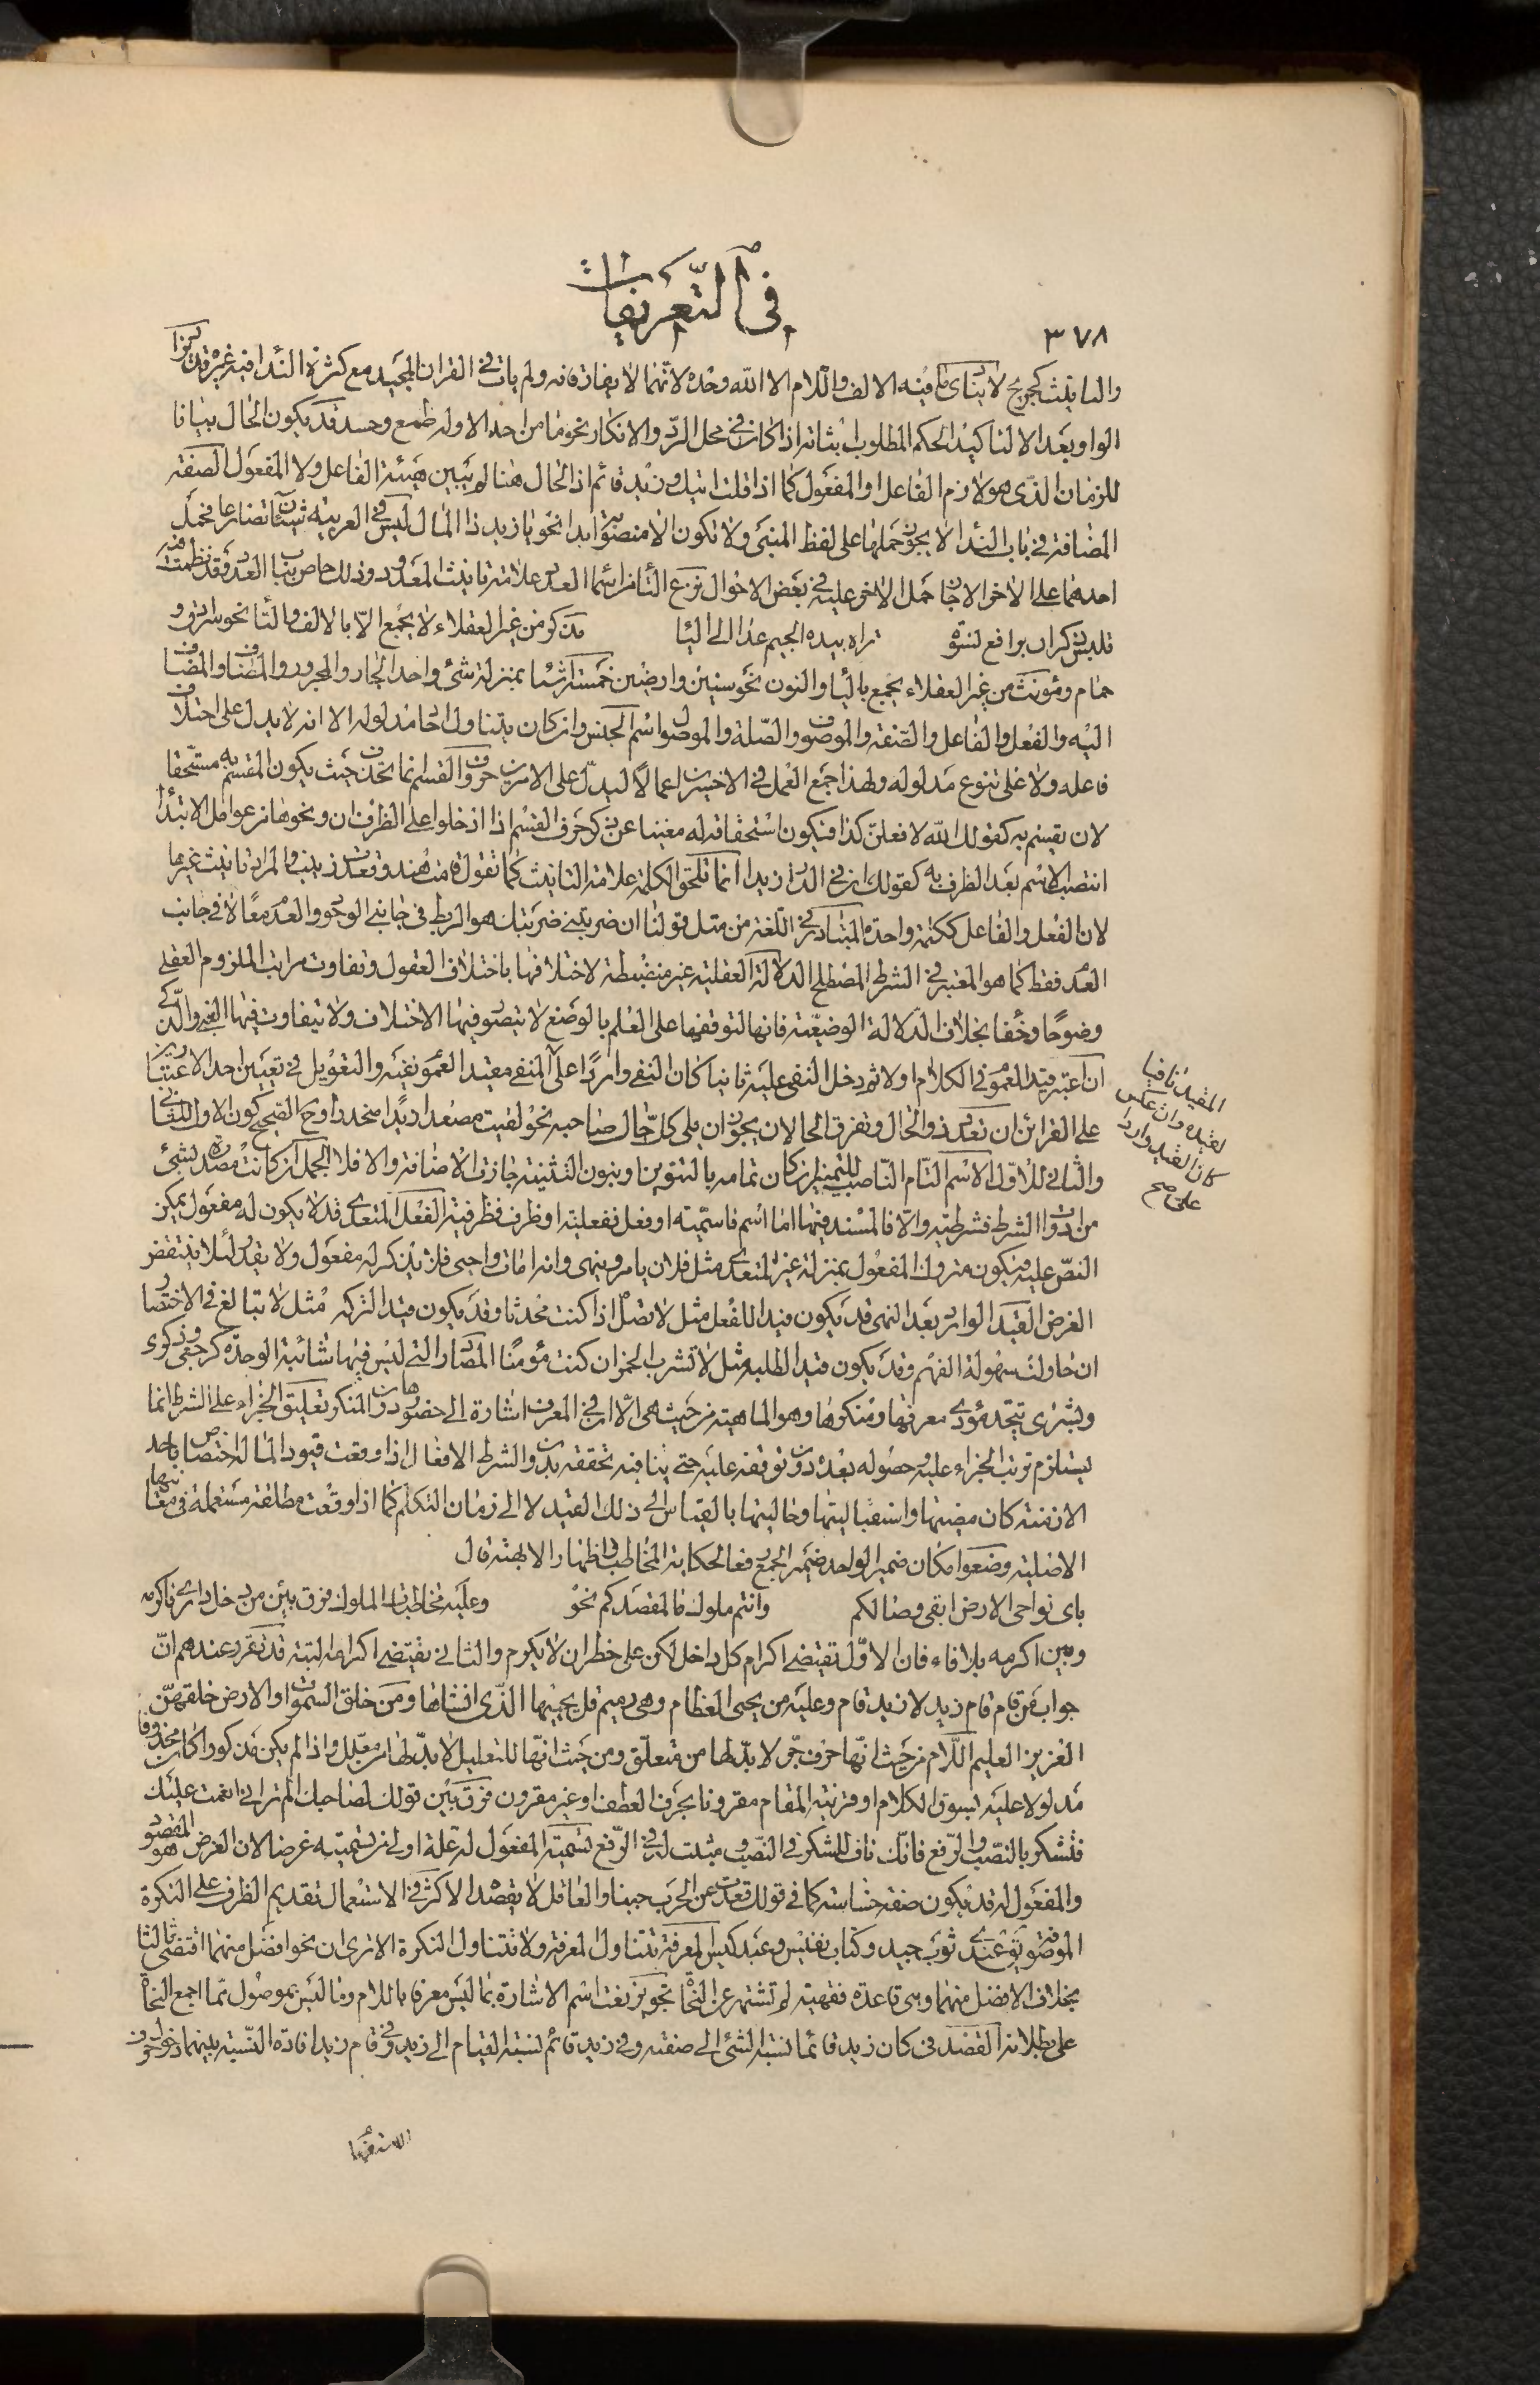 في التعريفات
٣٧٨
والتانيث كجريح لا ينادى ما فيه الالف واللام الا الله وحده لانهما لا يفارقانه ولم يات في القران المجيد مع كثرة الندا فيه غيره قد تزاد
الواو بعد الا لتاكيد الحكم المطلوب اثباته اذا كان في محل الرد والانكار نحو ما من احد الا وله طمع وحسد قد يكون الحال بيانا
للزمان الذى هو لازم الفاعل او المفعول كما اذا قلت اتيك وزيد قائم اذ الحال هنا لم يبين هيئة الفاعل ولا المفعول الصفة
المضافة في باب الندا لا يجوز حملها على لفظ المبنى ولا تكون الا منصوبة ابدا نحو يا زيد ذا المال ليس في العربية شيئان تضارعا فحمل
احدهما على الاخر الا جاز حمل الاخر عليه في بعض الاحوال نزع التا من اسما العدد علامة تانيث المعدود وذلك خاص بباب العدد وقد نظمت فيه
مذكر من غير العقلاء لا يجمع الا بالالف والتا نحو سرادق و
حمام ومؤنث من غير العقلاء يجمع باليا والنون نحو سنين وارضين خمسة اشيا بمنزلة شئ واحد الجار والمجرور والمضاف والمضاف
اليه والفعل والفاعل والصفة والموصوف والصلة والموصول اسم الجنس وان كان يتناول احاد مدلوله الا انه لا يدل على اختلاف
فاعله ولا على تنوع مدلوله ولهذا جمع العمل في الاخسرين اعمالا ليدل على الامرين حروف القسم انما تحذف حيث يكون المقسم به مستحقا
لان يقسم به كقولك الله لافعلن كذا فيكون استحقاقه له مغنيا عن ذكر حرف القسم اذا ادخلوا على الظرف ان ونحوها من عوامل الابتدا
انتصب الاسم بعد الظرف به كقولك ان في الدار زيدا انما تلحق الكلمة علامة التانيث كما تقول قامت هند وقعدت زينب والمراد تانيث غيرها
لان الفعل والفاعل ككلمة واحدة المتبادر في اللغة من مثل قولنا ان ضربتني ضربتك هو الربط في جانبي الوجود والعدم معا لا في جانب
العدم فقط كما هو المعتبر في الشرط المصطلح الدلالة العقلية غير منضبطة لاختلافها باختلاف العقول وتفاوت مراتب الملزوم العقلي
وضوحا وخفا بخلاف الدلالة الوضعية فانها لتوقفها على العلم بالوضع لا يتصور فيها الاختلاف ولا يتفاوت فيها الغبى والذكى
ان اعتبر قيد العموم في الكلام اولا ثم دخل النفى عليه ثانيا كان النفى واردا على المنفى مقيد العموم نفيه والتعويل في تعيين احد الاعتبارين
على القرائن ان تعدد ذو الحال وتفرق الحالان يجوز ان يلى كل حال صاحبه نحو لقيت مصعدا زيدا منحدرا وح الصحيح كون الاول للثاني
والثاني للاول الاسم التام الناصب للتمييز ان كان تمامه بالتنوين او بنون التثنية جازت الاضافة والا فلا الجمل ان كانت مصدرة بشئ
من ادوات الشرط فشرطية والا فالمسند فيها اما اسم فاسمية او فعل ففعلية او ظرف فظرفية الفعل المتعدى قد لا يكون له مفعول يمكن
النص عليه فيكون متروك المفعول بمنزلة غير المتعدى مثل فلان يامر وينهى وانه امات واحيى فلا يذكر له مفعول ولا يقدر لئلا ينتقض
الغرض القيد الوارد بعد النهى قد يكون قيدا للفعل مثل لا تصل اذا كنت محدثا وقد يكون قيدا لتركه مثل لا تبالغ في الاختصار
ان حاولت سهولة الفهم وقد يكون قيدا لطلبه مثل لا تشرب الخمر ان كنت مؤمنا المصادر التى ليس فيها شائبة الوحدة كرجعى وذكرى
وبشرى يتحد مؤدى معرفها ومنكرها وهو الماهية من حيث هى الا ان في المعرف اشارة الى حضورها دون المنكر تعليق الجزاء على الشرط انما
يستلزم ترتب الجزاء عليه وحصوله بعده دون توقفه عليه حتى ينافيه تحققه بدون الشرط الافعال اذا وقعت قيودا لما له اختصاص باحد
الازمنة كان مضيتها واستقباليتها وحاليتها بالقياس الى ذلك القيد لا الى زمان التكلم كما اذا وقعت مطلقة مستعملة في معانيها
الاصلية وضعوا مكان ضمير الواحد ضمير الجمع رفعا لحكاية المخاطب واظهار الابهة قال
باى نواحى الارض ابقى وصالكم وانتم ملوك ما لمقصدكم نحو وعليه مخاطبات الملوك فرق بين من دخل دارى فاكرمه
وبين اكرمه بلا فاء فان الاول تقتضى اكرام كل داخل لكن على خطر ان لا يكرم والثانى يقتضى اكرامه البتة قد تقرر عندهم ان
جواب من قام قام زيد لا زيد قام وعليه من يحيى العظام وهى رميم قل يحييها الذى انشاها ومن خلق السموات والارض خلقهن
العزيز العليم اللام من حيث انها حرف جر لا بد لها من متعلق ومن حيث انها للتعليل لا بد لها من معلل واذا لم يكن مذكورا كان محذوفا
مدلولا عليه بسوق الكلام او قرينة المقام مقرونا بحرف العطف او غير مقرون فرق بين قولك لصاحبك الم تر انى انعمت عليك
فتشكر بالنصب والرفع فانك ناف للشكر في النصب ومثبت له في الرفع تسمية المفعول له علة اولى من تسميته غرضا لان الغرض هو المقصود
والمفعول له قد يكون صفة خساسة كما في قولك قعدت عن الحرب جبنا والعاقل لا يقصد الاكثر في الاستعمال تقديم الظرف على النكرة
الموصوفة يق عندى ثوب جيد وكتاب نفيس وعبد كيس المعرفة تتناول المعرفة ولا تتناول النكرة الا ترى ان نحو افضل منهما اقتضى ثالثا
بخلاف الافضل منهما وهى قاعدة فقهية لم تشتهر عن النحاة تجويز نعت اسم الاشارة بما ليس معرفا باللام وما ليس بموصول مما اجمع النحاة
على بطلانه القصد في كان زيد قائما نسبة الشئ الى صفته وفي زيد قائم نسبة القيام الى زيد وفي قام زيد افادة النسبة بينهما دخول حرف
المقيد نافيا
لقيده وان عكس
كان القيد واردا
على صح
الاستفهام